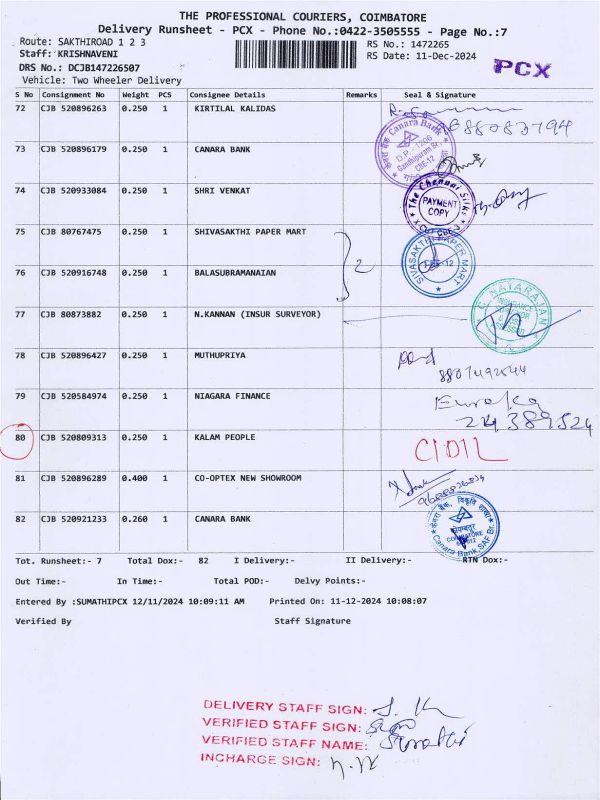 THE PROFESSIONAL COURIERS, COIMBATORE
Delivery Runsheet - PCX - Phone No.:0422-3505555 - Page No.:7
Route: SAKTHIROAD 1 2 3
RS No.: 1472265
Staff: KRISHNAVENI
RS Date: 11-Dec-2024
PCX
DRS No.: DCJB147226507
Vehicle: Two Wheeler Delivery
S No Consignment No Weight PCS Consignee Details Remarks Seal & Signature
72 CJB 520896263 0.250 1 KIRTILAL KALIDAS
73 CJB 520896179 0.250 1 CANARA BANK
Canara Bank
D.P. - 1206
Gandhipuram Br.
CBE-12
74 CJB 520933084 0.250 1 SHRI VENKAT
The Chennai Silks
PAYMENT COPY
75 CJB 80767475 0.250 1 SHIVASAKTHI PAPER MART
SIVASAKTHI PAPER MART
CBE-12
76 CJB 520916748 0.250 1 BALASUBRAMANAIAN
2
77 CJB 80873882 0.250 1 N.KANNAN (INSUR SURVEYOR)
C. NATARAJAN
INSURANCE
78 CJB 520896427 0.250 1 MUTHUPRIYA
8807492544
79 CJB 520584974 0.250 1 NIAGARA FINANCE
Eureka
24389524
80 CJB 520809313 0.250 1 KALAM PEOPLE
81 CJB 520896289 0.400 1 CO-OPTEX NEW SHOWROOM
82 CJB 520921233 0.260 1 CANARA BANK
COIMBATORE
Canara Bank, SAF Br.
Tot. Runsheet:- 7 Total Dox:- 82 I Delivery:- II Delivery:- RTN Dox:-
Out Time:- In Time:- Total POD:- Delvy Points:-
Entered By :SUMATHIPCX 12/11/2024 10:09:11 AM Printed On: 11-12-2024 10:08:07
Verified By Staff Signature
DELIVERY STAFF SIGN:
VERIFIED STAFF SIGN:
VERIFIED STAFF NAME:
INCHARGE SIGN: